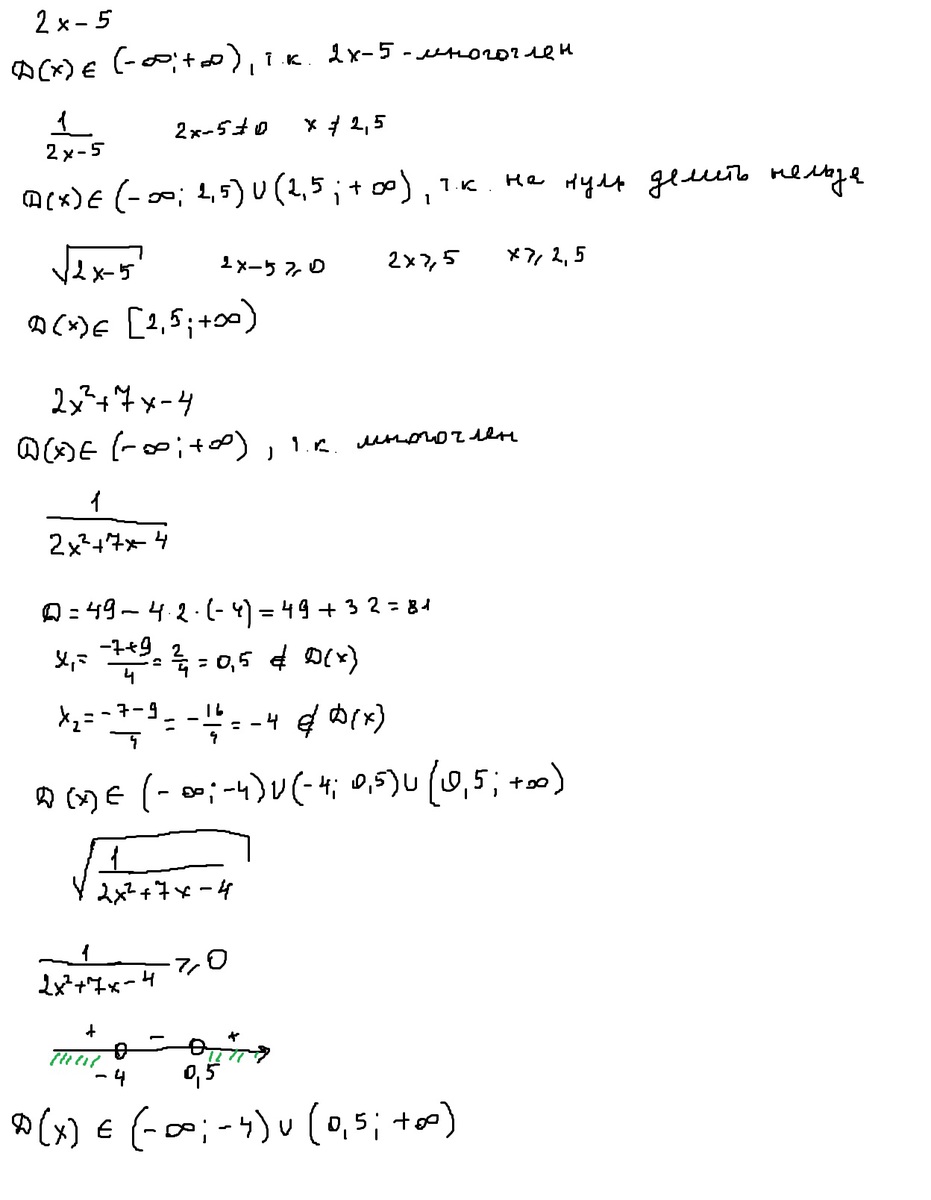 2x-5
D(x)∈ (-∞;+∞), т.к. 2x-5 - многочлен
1/(2x-5) 2x-5≠0 x ≠ 2,5
D(x)∈(-∞; 2,5)∪(2,5;+∞), т.к. на нуль делить нельзя
√(2x-5) 2x-5⩾0 2x⩾5 x⩾2,5
D(x)∈ [2,5;+∞)
2x²+7x-4
D(x)∈(-∞;+∞), т.к. многочлен
1/(2x²+7x-4)
D=49-4·2·(-4)=49+32=81
x₁=(-7+9)/4=2/4=0,5 ∉ D(x)
x₂=(-7-9)/4=-16/4=-4 ∉ D(x)
D(x)∈(-∞;-4)∪(-4; 0,5)∪(0,5;+∞)
√(1/(2x²+7x-4))
1/(2x²+7x-4)⩾0
+ - +
-4 0,5
D(x)∈(-∞;-4)∪(0,5;+∞)